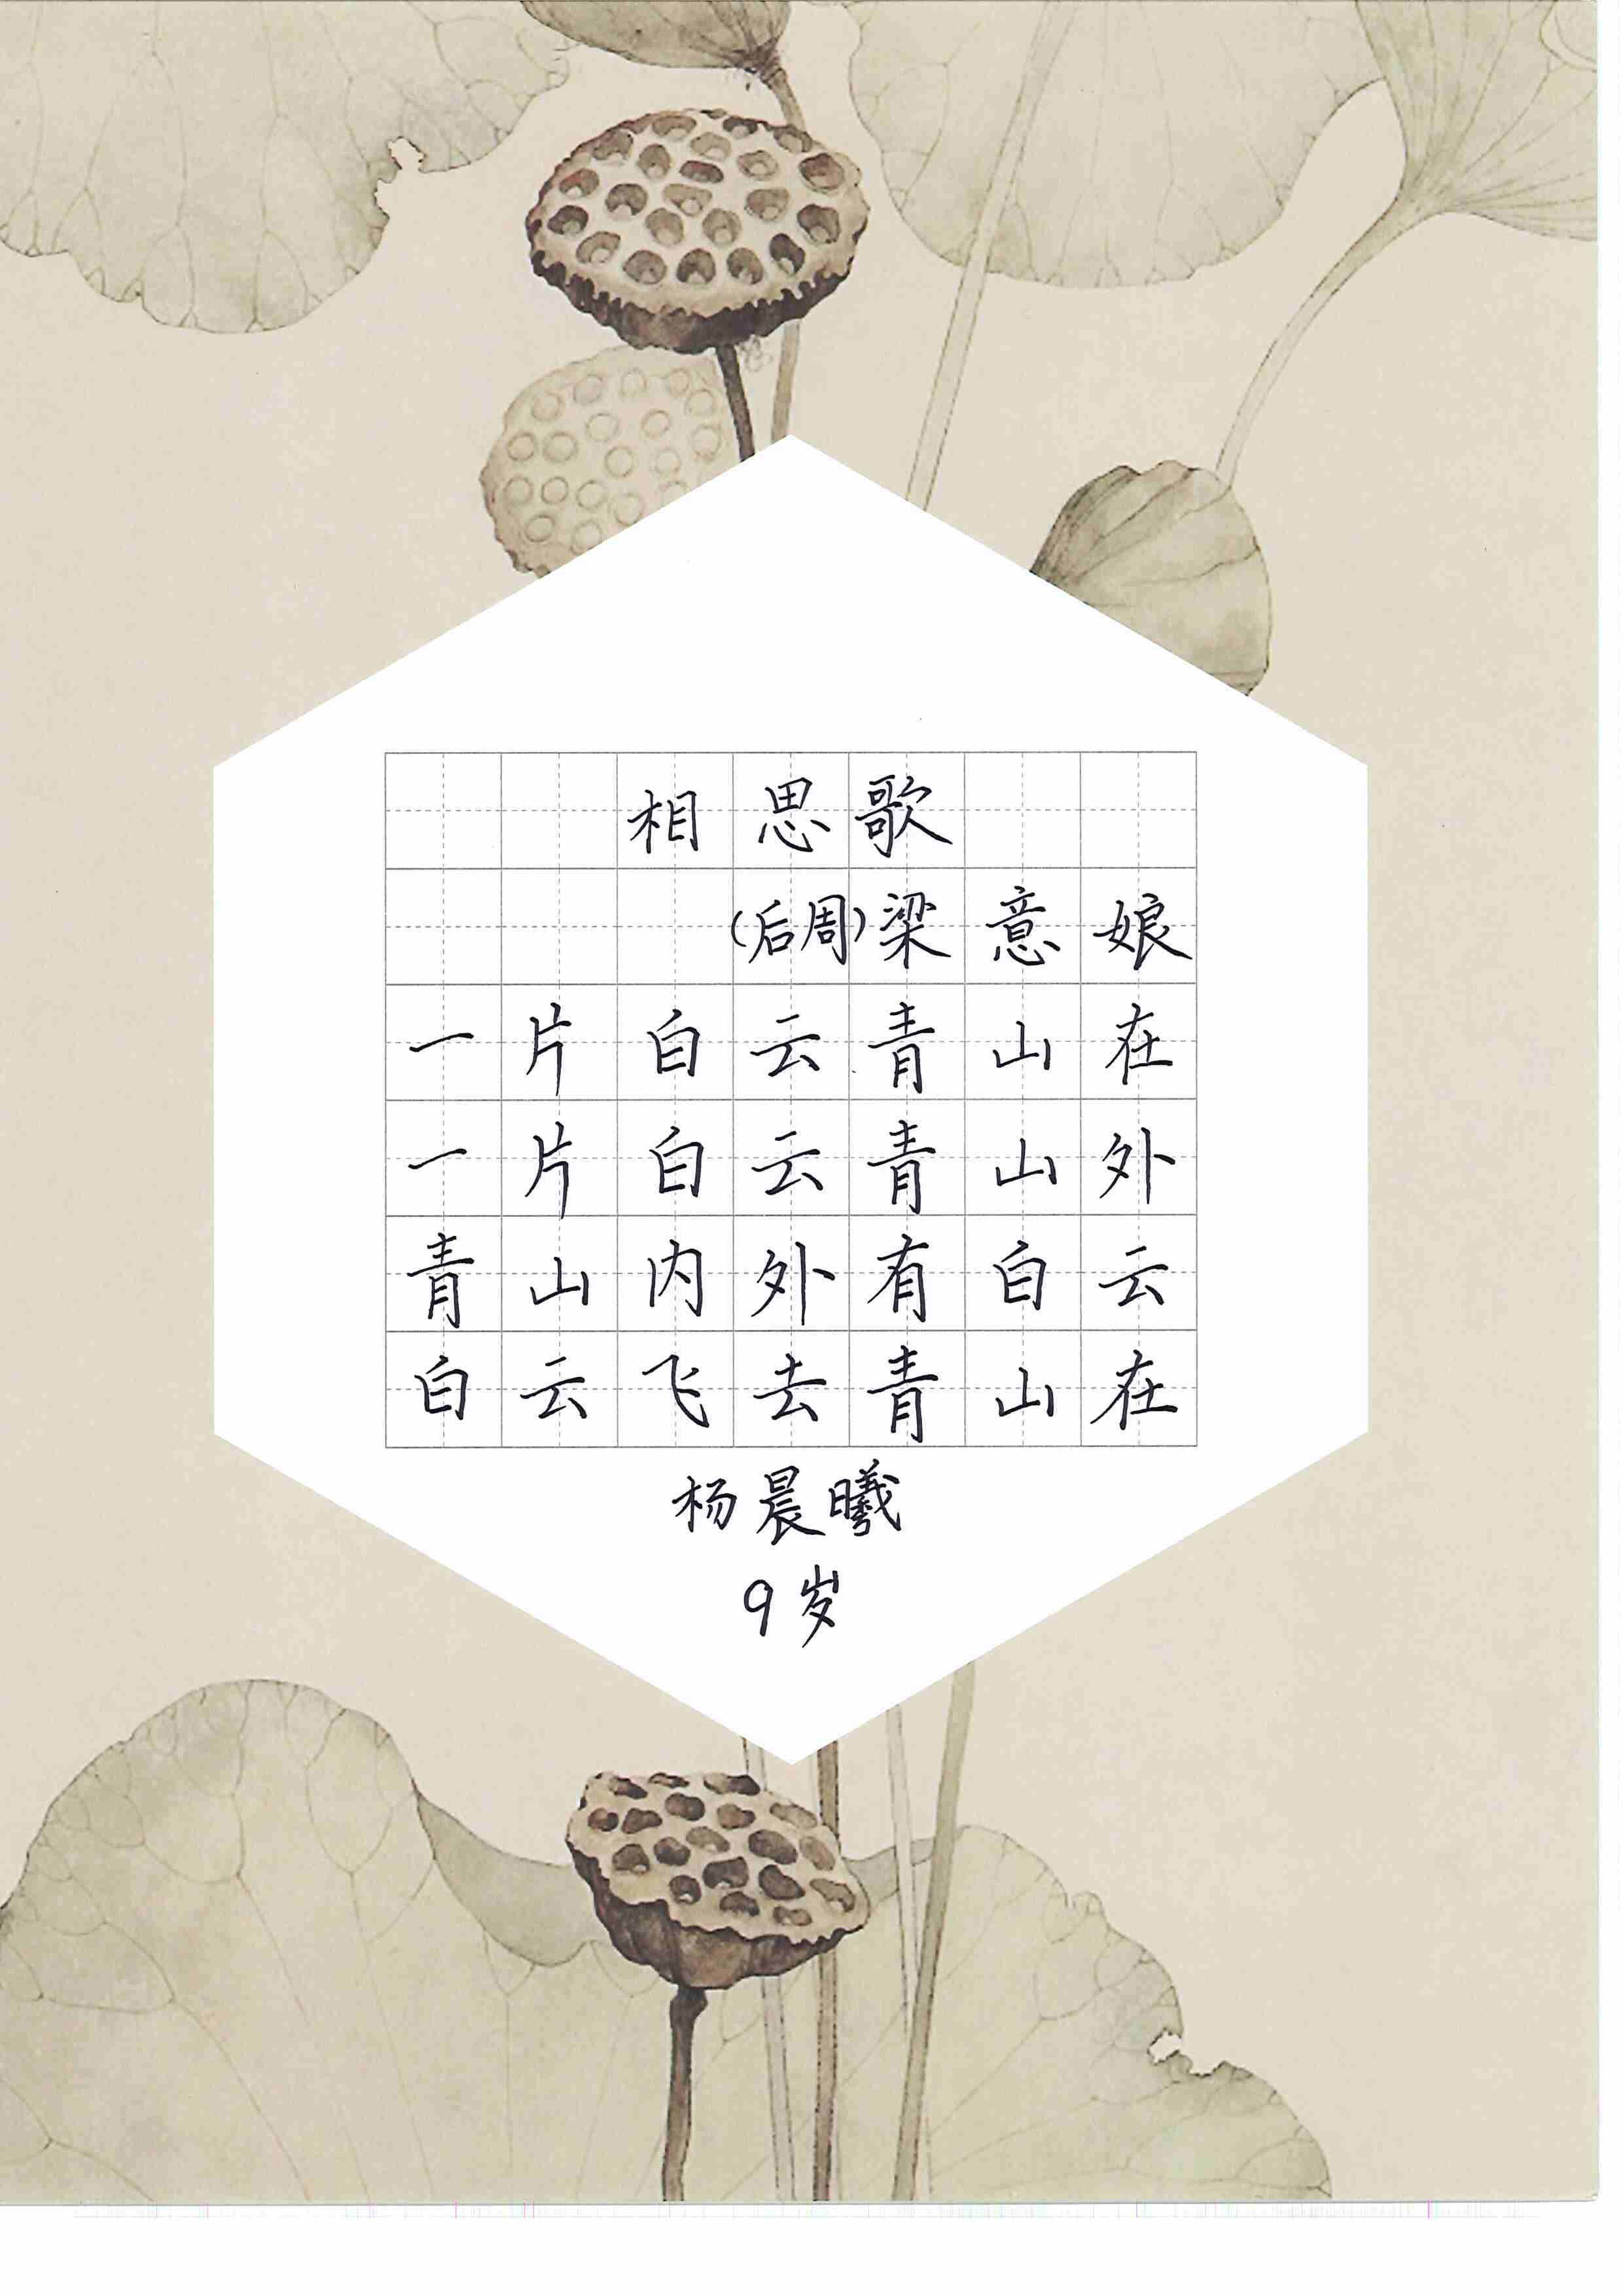 相思歌
(后周)梁意娘
一片白云青山在
一片白云青山外
青山内外有白云
白云飞去青山在
杨晨曦
9岁